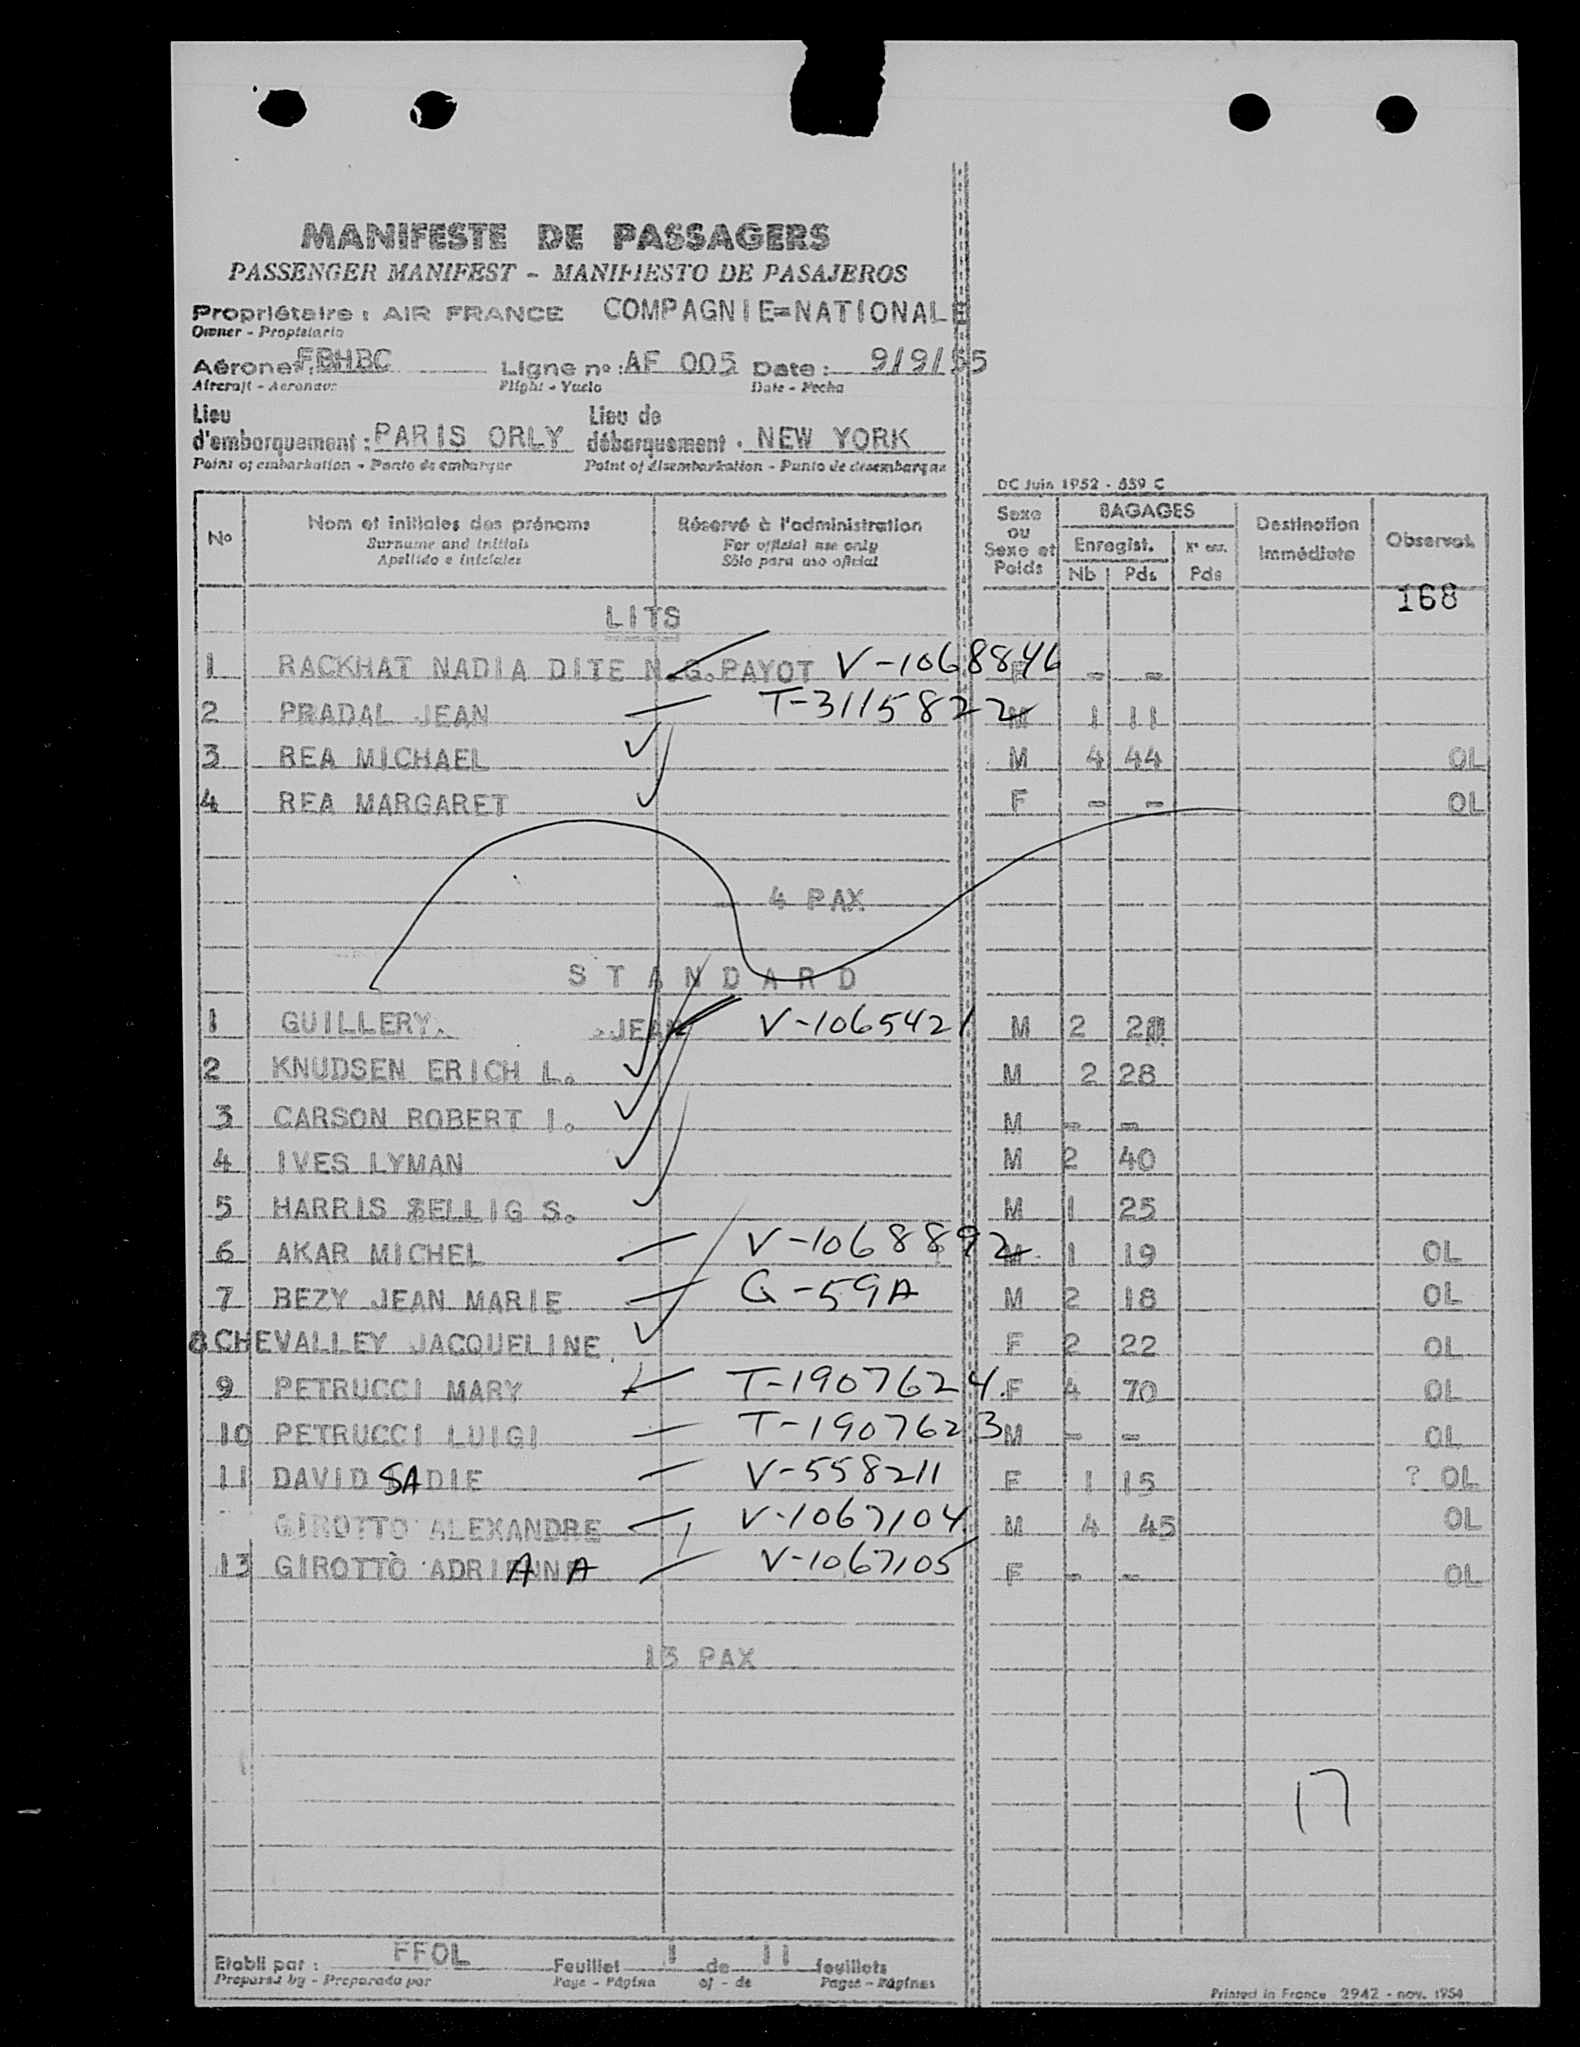 MANIFESTE DE PASSAGERS
PASSENGER MANIFEST - MANIFIESTO DE PASAJEROS
Propriétaire : AIR FRANCE COMPAGNIE=NATIONALE
Owner - Propietario
Aéronef : FBHBC Ligne no : AF 005 Date : 9/9/55
Aircraft - Aeronave Flight - Vuelo Date - Fecha
Lieu Lieu de
d'embarquement : PARIS ORLY débarquement . NEW YORK
Point of embarkation - Punto de embarque Point of disembarkation - Punto de desembarque
DC Juin 1952 - 559 C
No Nom et initiales des prénoms Réservé à l'administration Sexe ou Sexe et Poids BAGAGES Destination Immédiate Observat.
Surname and initials For official use only Enregist. Nº enr.
Apellido e iniciales Sólo para uso oficial Nb Pds Pds
168
LITS
1 RACKHAT NADIA DITE N.G.PAYOT V-1068846 F - -
2 PRADAL JEAN T-3115822 M 1 11
3 REA MICHAEL M 4 44 OL
4 REA MARGARET F - - OL
4 PAX
S T A N D A R D
1 GUILLERY. .JEAN V-1065421 M 2
2 KNUDSEN ERICH L. M 2 28
3 CARSON ROBERT I. M - -
4 IVES LYMAN M 2 40
5 HARRIS SELLIG S. M 1 25
6 AKAR MICHEL V-1068892 M 1 19 OL
7 BEZY JEAN MARIE G-59A M 2 18 OL
8 CHEVALLEY JACQUELINE F 2 22 OL
9 PETRUCCI MARY T-1907624 F 4 70 OL
10 PETRUCCI LUIGI T-1907623 M - - OL
11 DAVID SADIE V-558211 F 1 15 ? OL
GIROTTO ALEXANDRE V-1067104 M 4 45 OL
13 GIROTTO ADRIANNA V-1067105 F - - OL
13 PAX
17
Etabli par : FFOL Feuillet 1 de 11 feuillets
Prepared by - Preparado por Page - Página of - de Pages - Páginas
Printed in France 2942 - nov. 1954